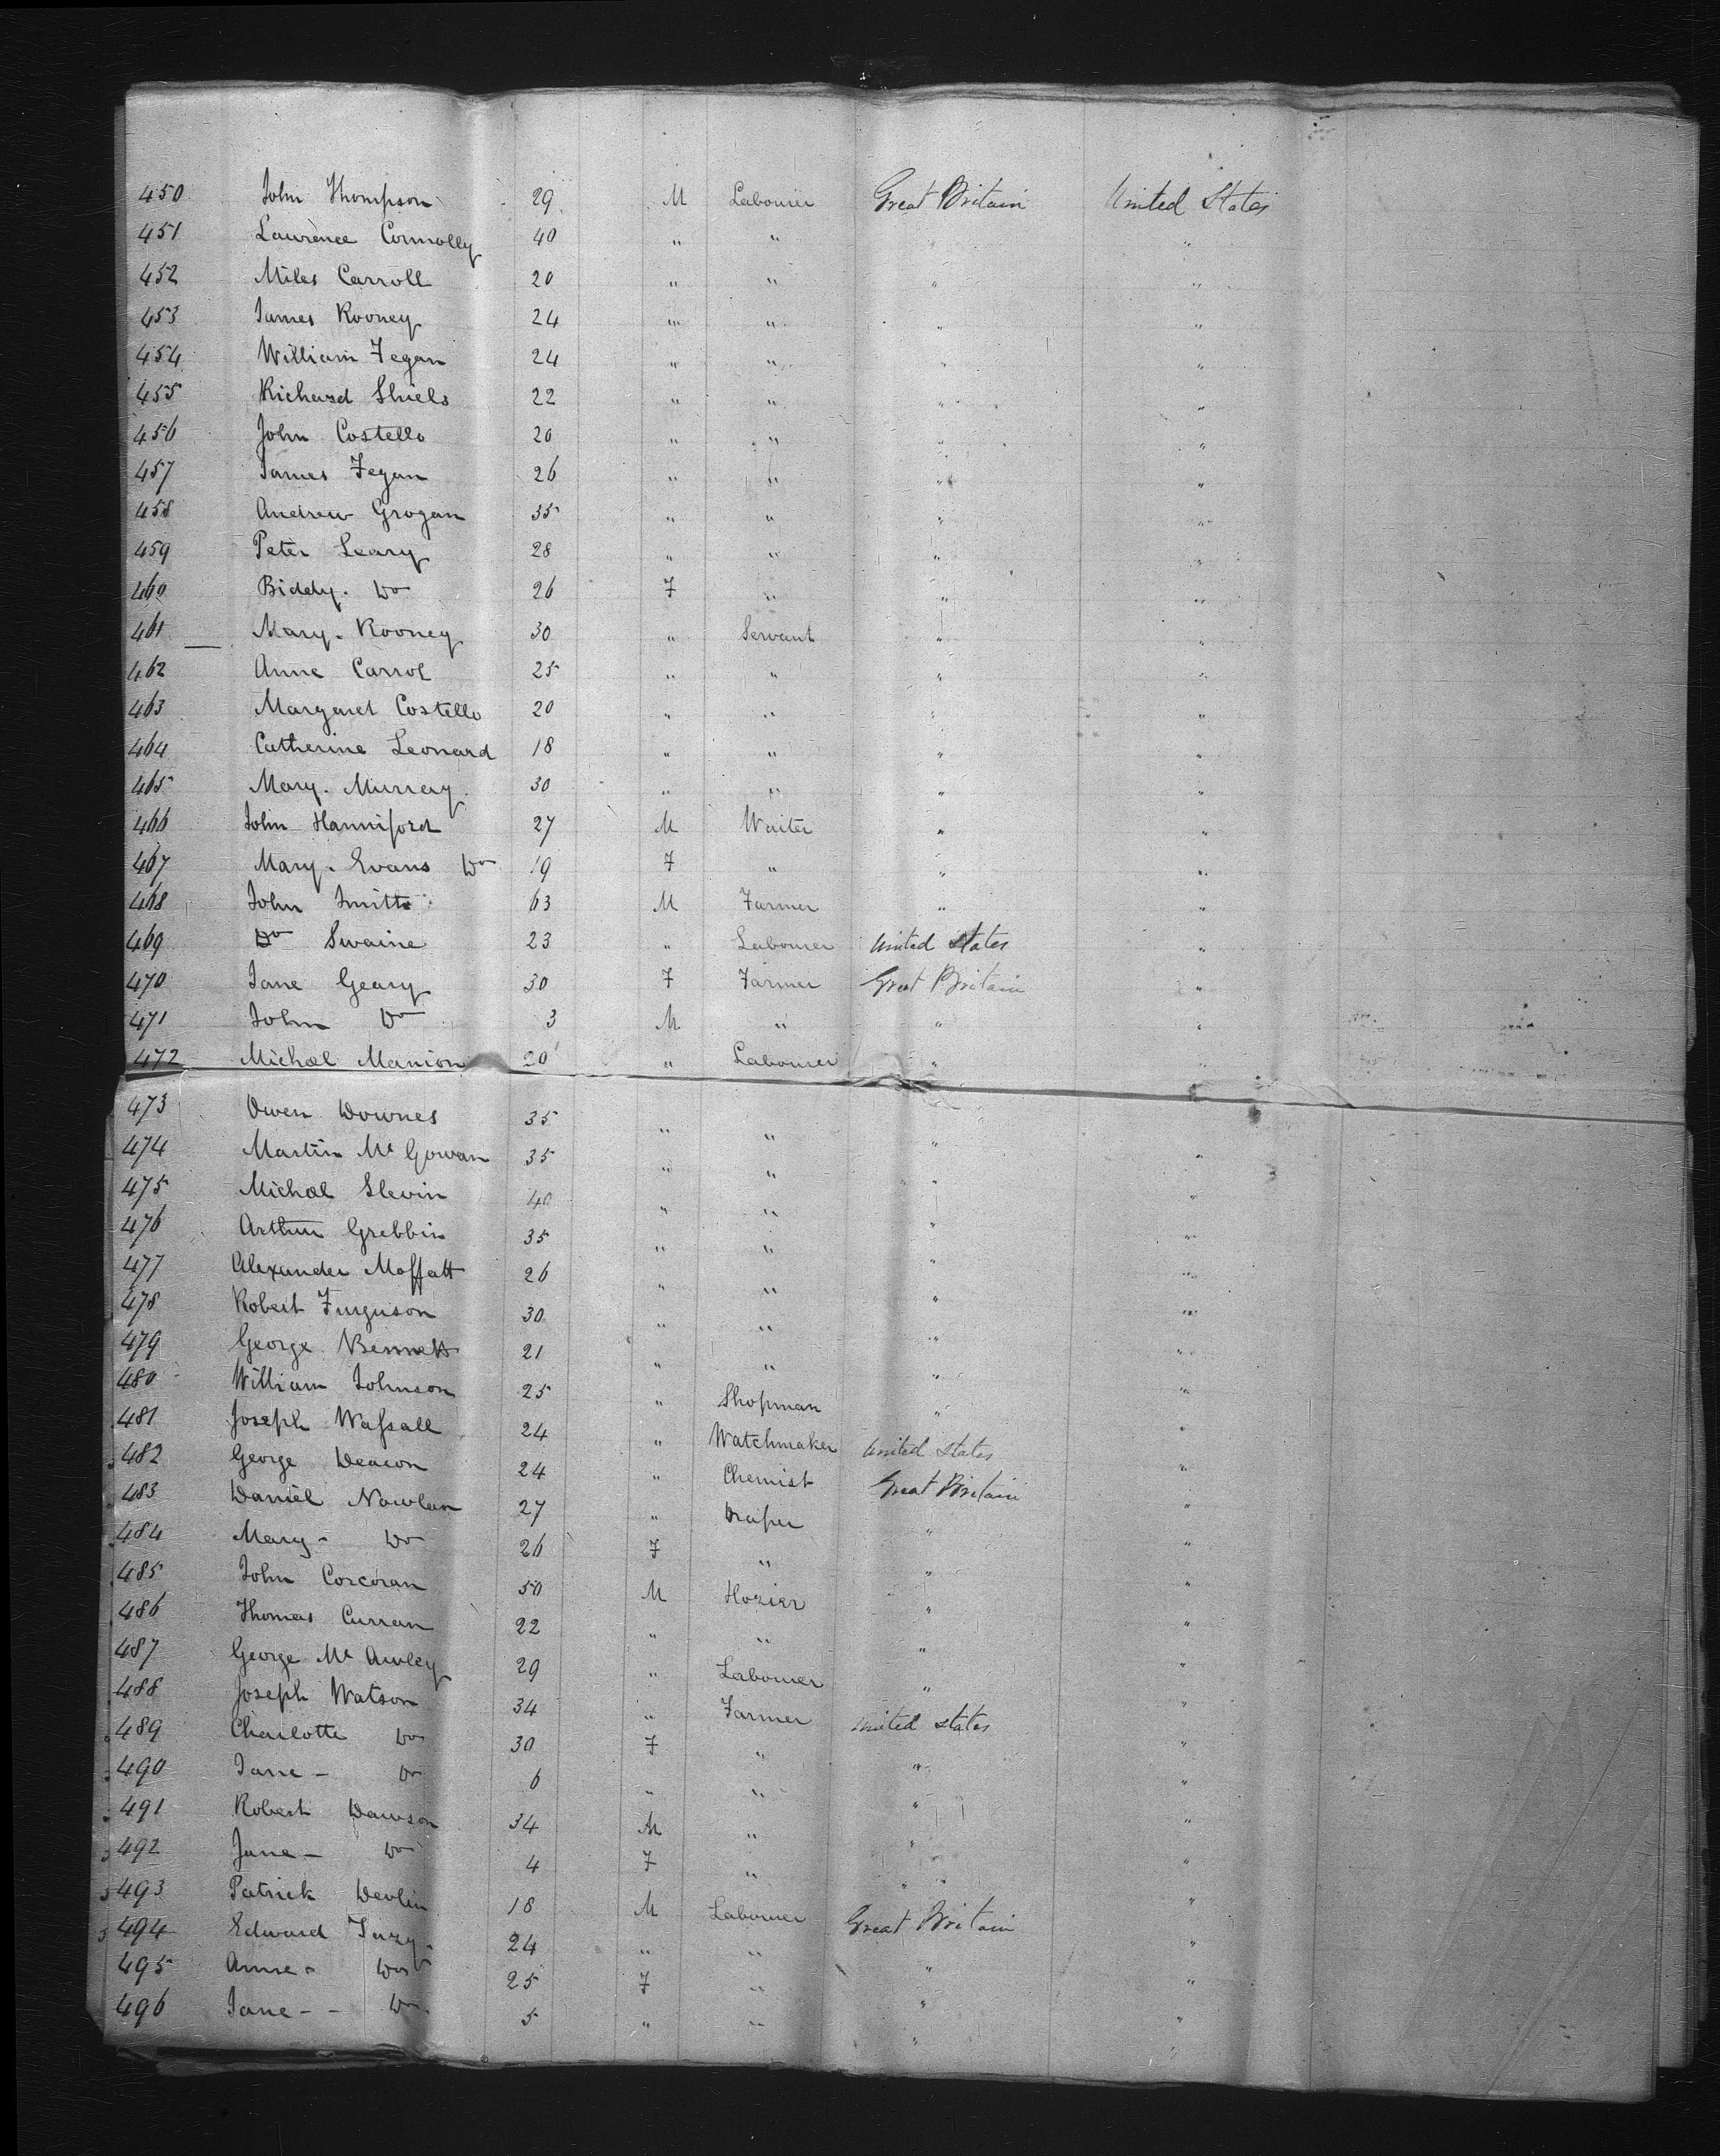 450 John Thompson 29 M Labourer Great Britain United States
451 Laurence Connolly 40 " " " "
452 Miles Carroll 20 " " " "
453 James Rooney 24 " " " "
454 William Fegan 24 " " " "
455 Richard Shiels 22 " " " "
456 John Costello 20 " " " "
457 James Fegan 26 " " " "
458 Andrew Grogan 35 " " " "
459 Peter Leary 28 " " " "
460 Biddy. Do 26 F " " "
461 Mary. Rooney 30 " Servant " "
462 Anne Carrol 25 " " " "
463 Margaret Costello 20 " " " "
464 Catherine Leonard 18 " " " "
465 Mary. Murray 30 " " " "
466 John Hanniford 27 M Waiter " "
467 Mary. Evans Do 19 F " " "
468 John Smith 63 M Farmer " "
469 Do Swaine 23 " Labourer United States "
470 Jane Geary 30 F Farmer Great Britain "
471 John Do 3 M " " "
472 Michael Manion 20 " Labourer " "
473 Owen Downes 35 " " " "
474 Martin Mc Gowan 35 " " " "
475 Michael Slevin 40 " " " "
476 Arthur Grebbin 35 " " " "
477 Alexander Moffatt 26 " " " "
478 Robert Furguson 30 " " " "
479 George Bennett 21 " " " "
480 William Johnson 25 " Shopman " "
481 Joseph Wassall 24 " Watchmaker United States "
482 George Deacon 24 " Chemist Great Britain "
483 Daniel Nowlan 27 " Draper " "
484 Mary - Do 26 F " " "
485 John Corcoran 50 M Hozier " "
486 Thomas Curran 22 " " " "
487 George Mc Auley 29 " Labourer " "
488 Joseph Watson 34 " Farmer United States "
489 Charlotte Do 30 F " " "
490 Jane - Do 6 " " " "
491 Robert Dawson 34 M " " "
492 Jane - Do 4 F " " "
493 Patrick Devlin 18 M Labourer Great Britain "
494 Edward 24 " " " "
495 Anne - Do 25 F " " "
496 Jane - - Do. 5 " " "